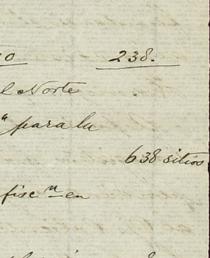 o 238.
l Norte
" para la
638 sitios
fisc.ⁿ en